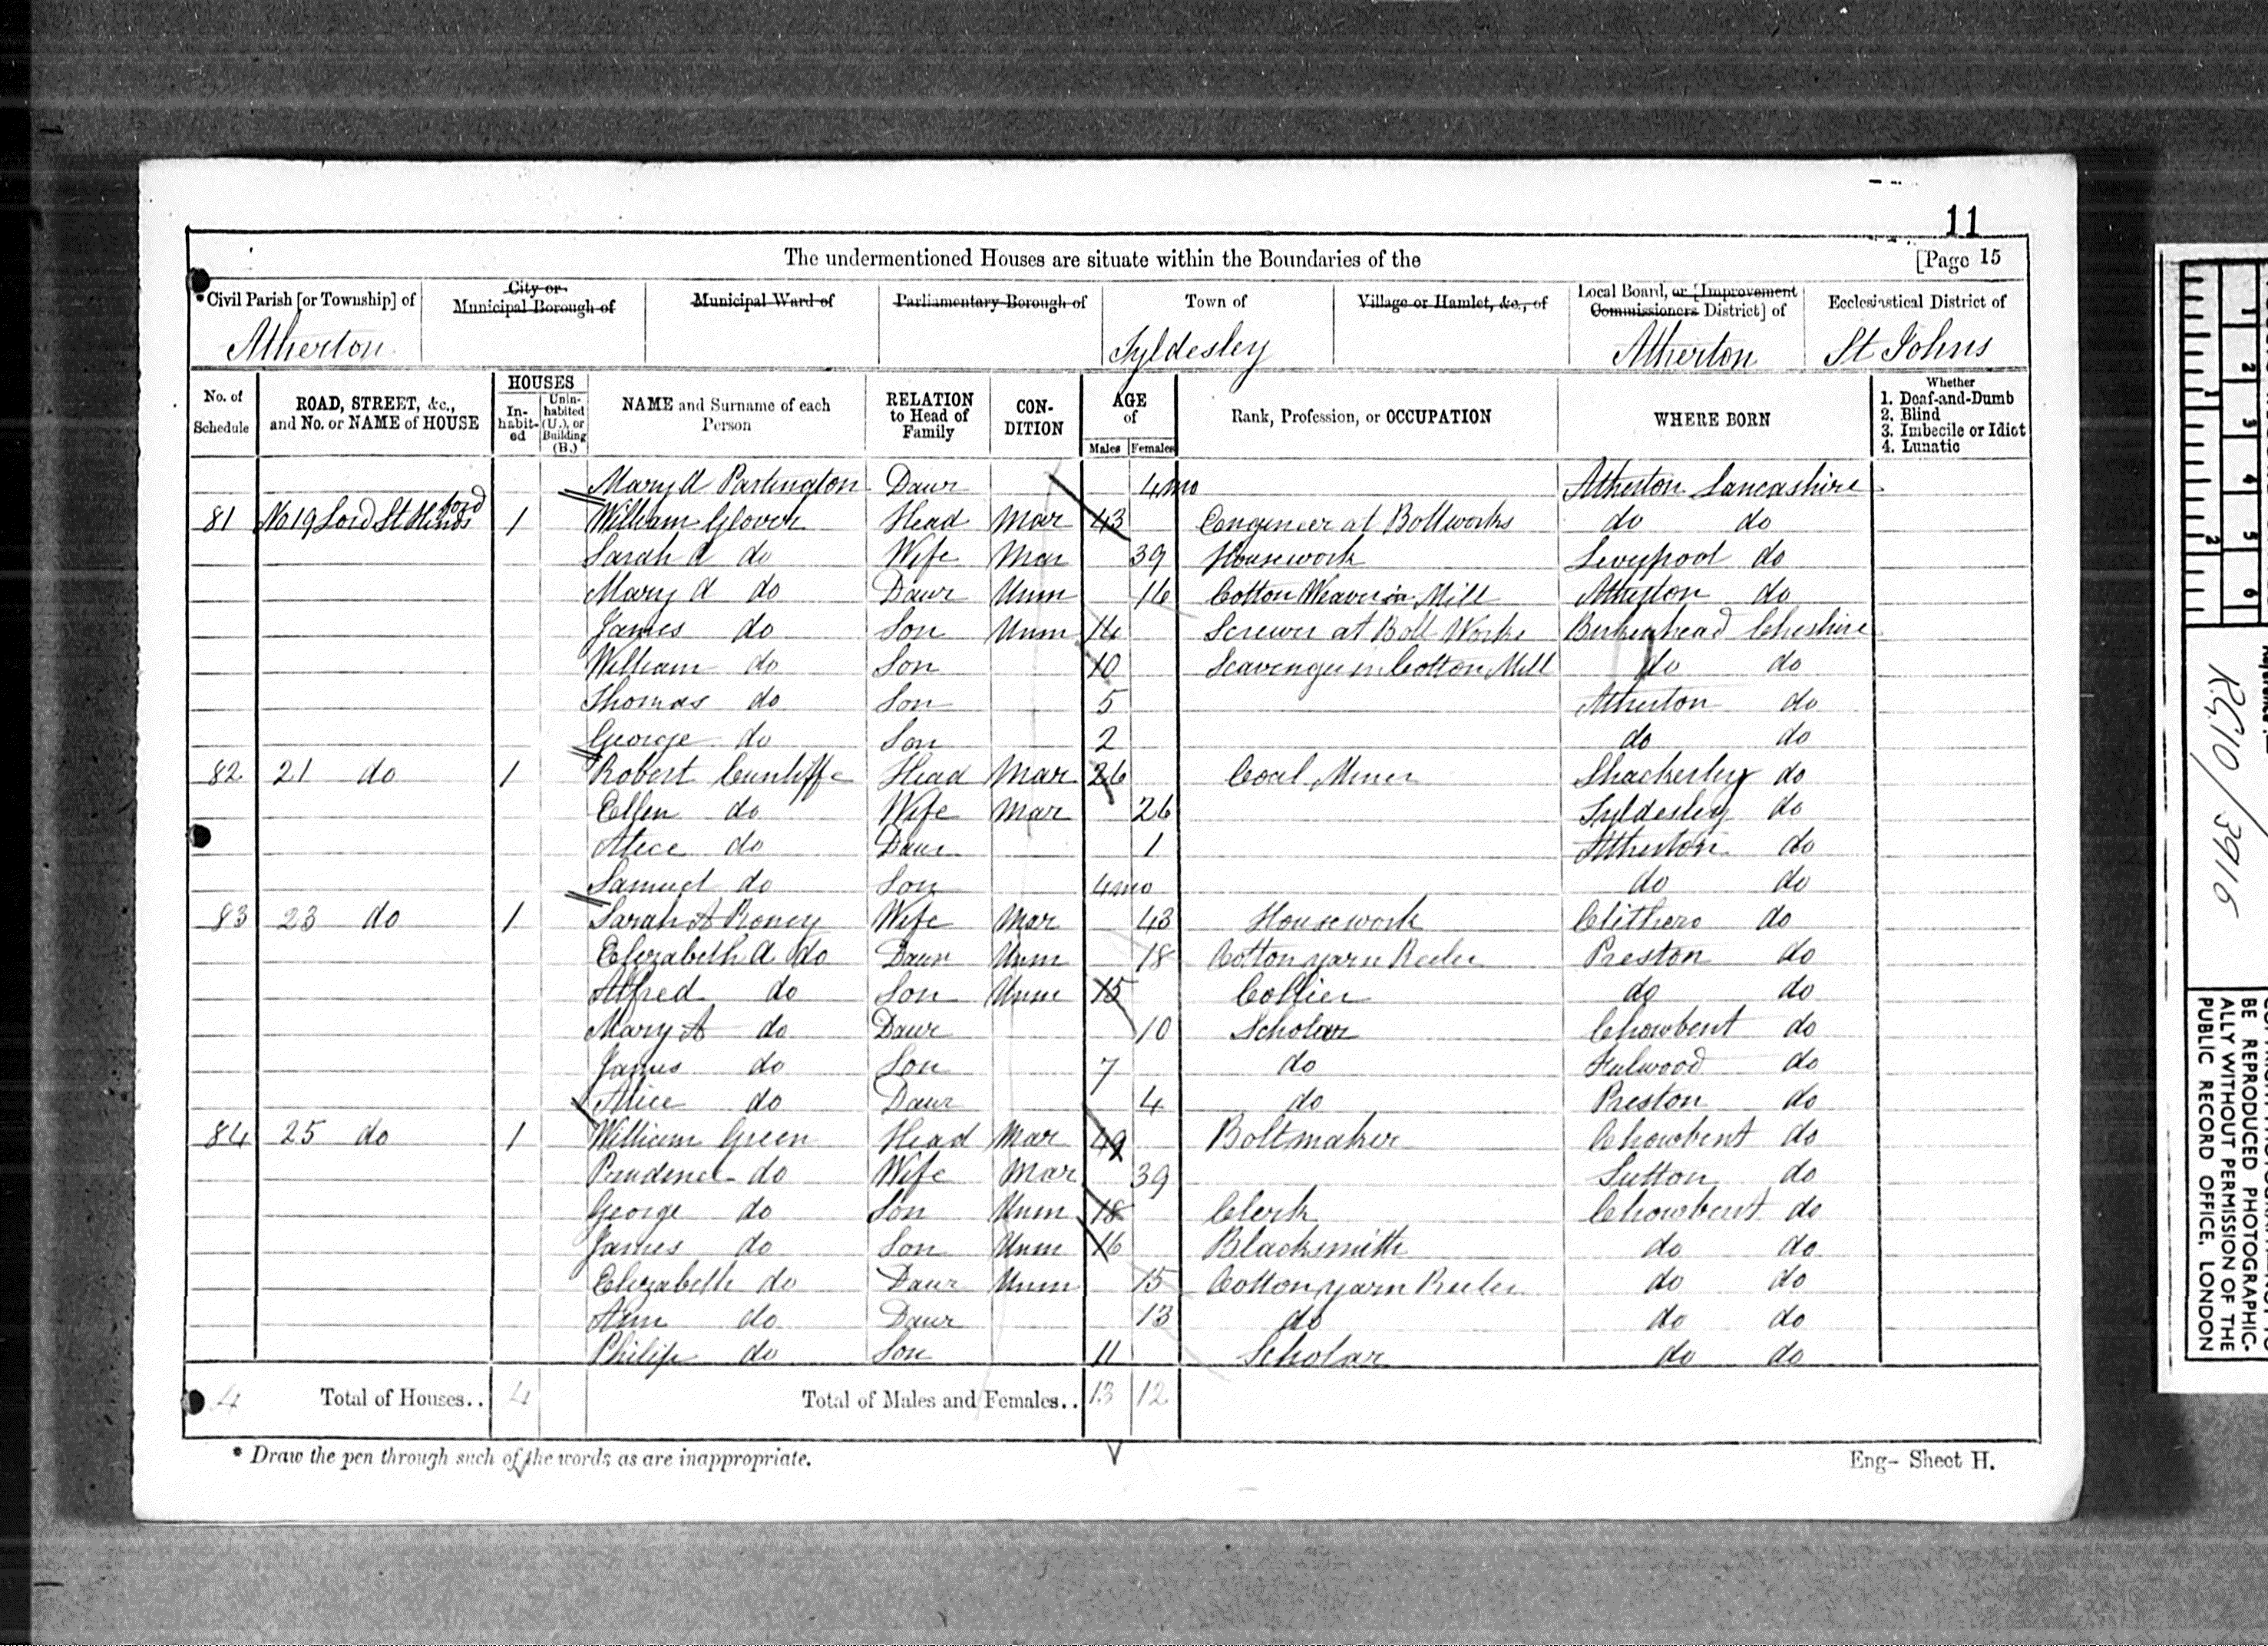 11
The undermentioned Houses are situate within the Boundaries of the [Page 15
Civil Parish [or Township] of City or Municipal Borough of Municipal Ward of Parliamentary Borough of Town of Village or Hamlet, &c., of Local Board, or [Improvement Commissioners District] of Ecclesiastical District of
Atherton Tyldesley Atherton St Johns
No. of Schedule ROAD, STREET, &c., and No. or NAME of HOUSE HOUSES Inhabited Uninhabited (U.), or Building (B.) NAME and Surname of each Person RELATION to Head of Family CONDITION AGE of Males Females Rank, Profession, or OCCUPATION WHERE BORN Whether 1. Deaf-and-Dumb 2. Blind 3. Imbecile or Idiot 4. Lunatic
Mary A Partington Daur 4mo Atherton Lancashire
81 No 19 Lord St 1 William Glover Head Mar 43 Engineer at Boltworks do do
Sarah A do Wife Mar 39 Housework Liverpool do
Mary A do Daur Unm 16 Cotton Weaver in Mill Atherton do
James do Son Unm 14 Screwer at Bolt Works Birkenhead Cheshire
William do Son 10 Scavenger in Cotton Mill do do
Thomas do Son 5 Atherton do
George do Son 2 do do
82 21 do 1 Robert Cunliffe Head Mar 26 Coal Miner Shackerley do
Ellen do Wife Mar 26 Tyldesley do
Alice do Daur 1 Atherton do
Samuel do Son 4mo do do
83 23 do 1 Sarah A Roney Wife Mar 43 Housework Clithero do
Elizabeth A do Daur Unm 18 Cotton yarn Reeler Preston do
Alfred do Son Unm 15 Collier do do
Mary A do Daur 10 Scholar Chowbent do
James do Son 7 do Fulwood do
Alice do Daur 4 do Preston do
84 25 do 1 William Green Head Mar 49 Boltmaker Chowbent do
Prudence do Wife Mar 39 Sutton do
George do Son Unm 18 Clerk Chowbent do
James do Son Unm 16 Blacksmith do do
Elizabeth do Daur Unm 15 Cotton yarn Reeler do do
Ann do Daur 13 do do do
Philip do Son 11 Scholar do do
4 Total of Houses.. 4 Total of Males and Females.. 13 12
* Draw the pen through such of the words as are inappropriate. Eng- Sheet H.
R.G.10/3916
BE REPRODUCED PHOTOGRAPHIC-
ALLY WITHOUT PERMISSION OF THE
PUBLIC RECORD OFFICE, LONDON